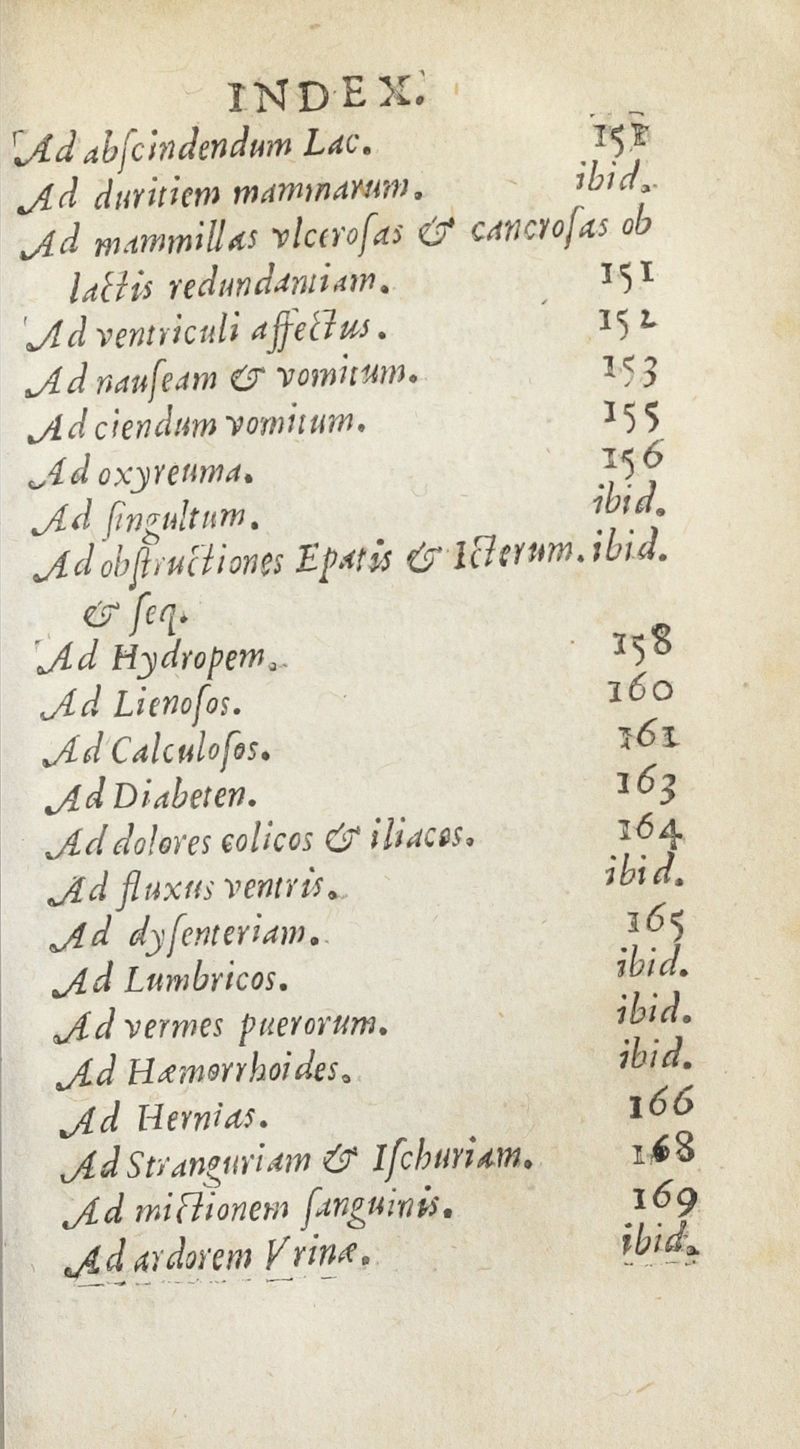 INDEX.
Ad abſcindendum Lac. 151
Ad duritiem mammarum. ibid.
Ad mammillas vlceroſas & cancroſas ob
lactis redundantiam. 151
Ad ventriculi affectus. 152
Ad nauſeam & vomitum. 153
Ad ciendum vomitum. 155
Ad oxyreuma. 156
Ad ſingultum. ibid.
Ad obſtructiones Epatis & Icterum. ibid.
& ſeq.
Ad Hydropem. 158
Ad Lienoſos. 160
Ad Calculoſos. 161
Ad Diabeten. 163
Ad dolores colicos & iliacos. 164
Ad fluxus ventris. ibid.
Ad dyſenteriam. 165
Ad Lumbricos. ibid.
Ad vermes puerorum. ibid.
Ad Hæmorrhoides. ibid.
Ad Hernias. 166
Ad Stranguriam & Iſchuriam. 168
Ad mictionem ſanguinis. 169
Ad ardorem Vrinæ. ibid.